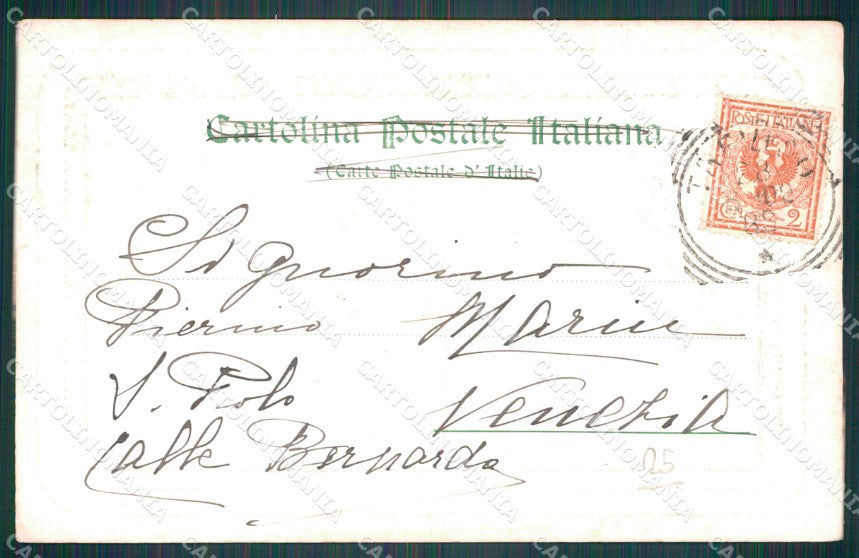 Cartolina Postale Italiana
(Carte Postale d'Italie)
POSTE ITALIANE
2
Signorino
Pierino Marin
S. Polo Venezia
Calle Bernardo
25
CARTOLINOMANIA